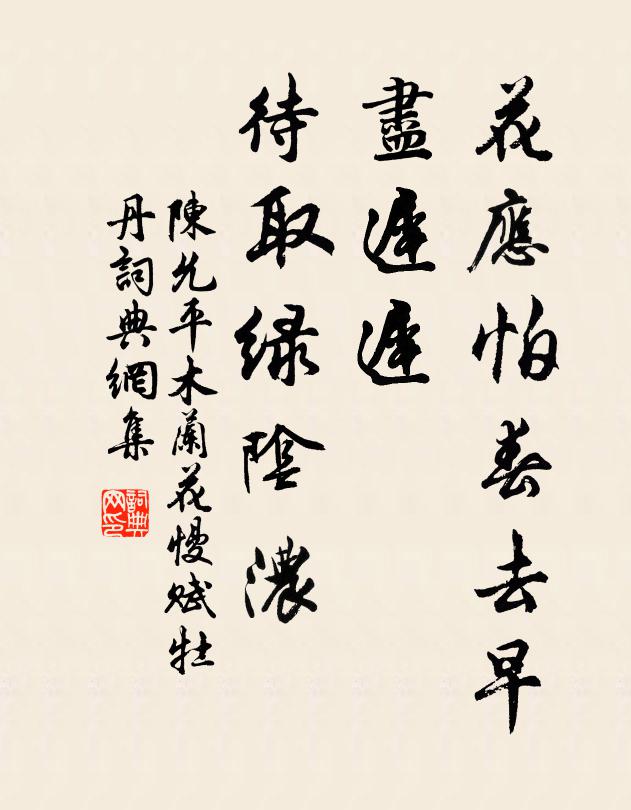 花應怕春去早
盡遲遲
待取緑陰濃
陳允平木蘭花慢賦牡
丹詞典網集
詞典
网印